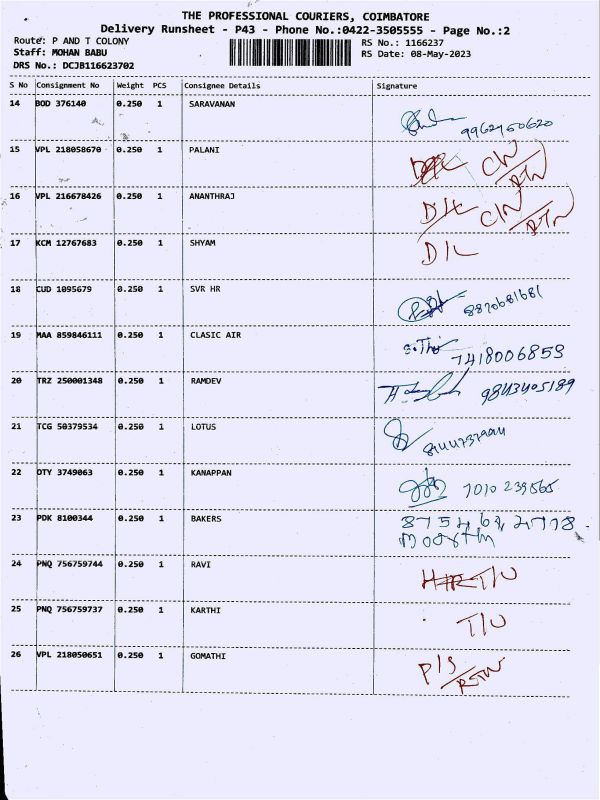 THE PROFESSIONAL COURIERS, COIMBATORE
Delivery Runsheet - P43 - Phone No.:0422-3505555 - Page No.:2
Route: P AND T COLONY RS No.: 1166237
Staff: MOHAN BABU RS Date: 08-May-2023
DRS No.: DCJB116623702
S No Consignment No Weight PCS Consignee Details Signature
14 BOD 376140 0.250 1 SARAVANAN
15 VPL 218058670 0.250 1 PALANI
16 VPL 216678426 0.250 1 ANANTHRAJ D/L
17 KCM 12767683 0.250 1 SHYAM D/L
18 CUD 1095679 0.250 1 SVR HR 8870681681
19 MAA 859846111 0.250 1 CLASIC AIR 7418006853
20 TRZ 250001348 0.250 1 RAMDEV 9843405189
21 TCG 50379534 0.250 1 LOTUS
22 OTY 3749063 0.250 1 KANAPPAN 7010 239565
23 PDK 8100344 0.250 1 BAKERS
24 PNQ 756759744 0.250 1 RAVI T/U
25 PNQ 756759737 0.250 1 KARTHI T/U
26 VPL 218050651 0.250 1 GOMATHI P/S